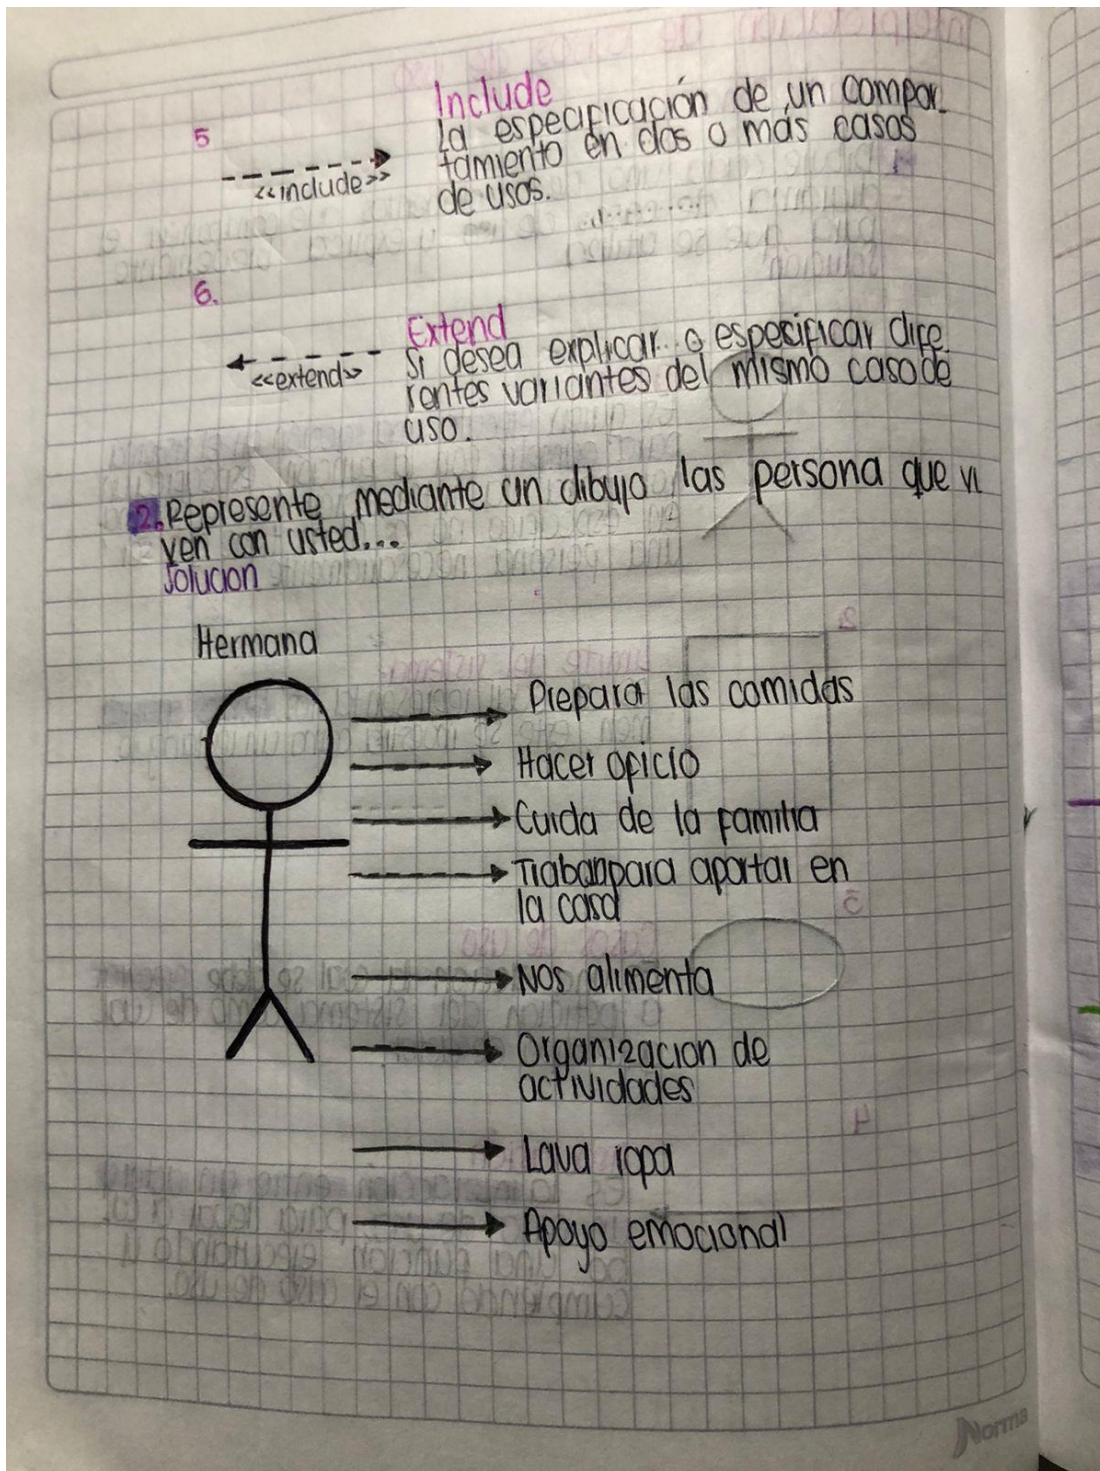 Include
5
La especificación de un compor_
tamiento en dos o más casos
<<include>>
de usos.
6.
Extend
Si desea explicar o especificar dife_
<<extend>>
rentes variantes del mismo caso de
uso.
2. Represente mediante un dibujo las persona que vi
ven con usted...
Solucion
Hermana
Prepara las comidas
Hacer oficio
Cuida de la familia
para aportar en
la casa
Nos alimenta
Organizacion de
actividades
Lava ropa
Apoyo emocional
Norma